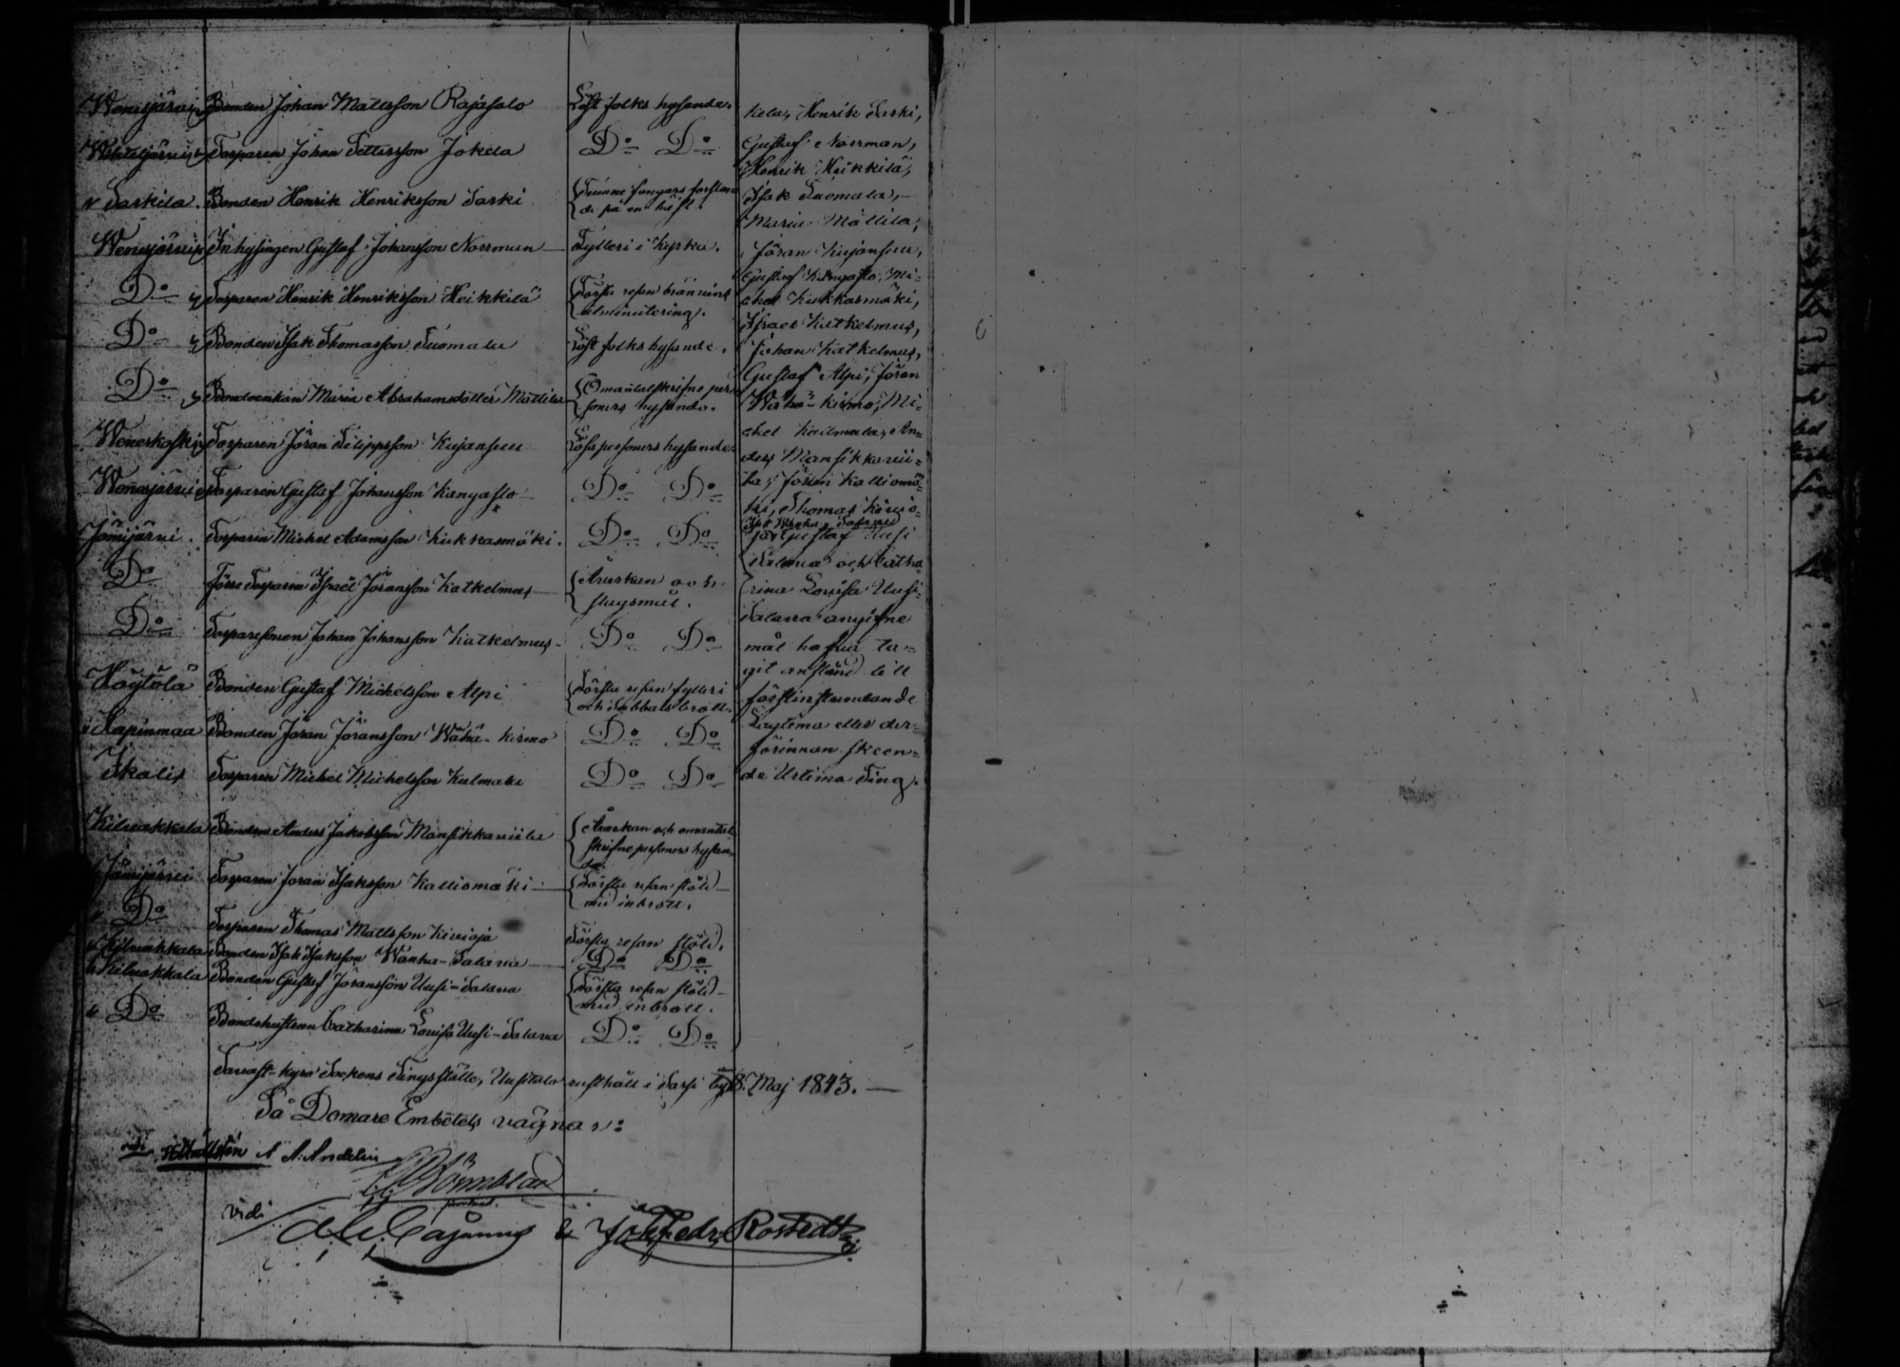 Wenesjärvi Bonden Johan Mattsson Rajasalo Löst folks hysande.
Torparen Johan Pettersson Jokela Do Do
Sarkila Bonden Henrik Henriksson Sarki
de på en häst.
Wenesjärvi Inhysingen Gustaf Johansson Norrman Fylleri i kyrka.
Do Torparen Henrik Henriksson Heikkilä Första resan bränvins
utminutering.
Do Bonden Isak Thomasson Tuomala Löst folks hysande.
Do Bondeenkan Maria Abrahamsdotter Mattila Omantalskrifne per
soners hysande.
Weneskoski Torparen Jöran Filippsson Kujansuu Lösa personers hysande.
Wenesjärvi Torparen Gustaf Johansson Kangasto Do Do
Jämijärvi Torparen Michel Adamsson Kukkasmäki. Do Do
Do Förre Torparen Israel Jöransson Katkelmus Åverkan och
slagsmål.
Do Torparesonen Johan Johansson Katkelmus Do Do
Högtola Bonden Gustaf Michelsson Alpi Första resan fylleri
och sabbatsbrott.
Kapinmaa Bonden Jöran Jöransson Wäha-Kirmo Do Do
Ikalis Torparen Michel Michelsson Kulmala Do Do
Kilvakkala Bonden Anders Jakobsson Mansikkaviita Åverkan och omantal
skrifne personers hysan
de.
Jämijärvi Torparen Jöran Isaksson Kalliomäki Första resan stöld
med inbrott.
Do Torparen Thomas Mattsson Kivioja Första resan stöld.
Kilvakkala Bonden Isak Isaksson Wanha-Salava Do Do
Kilvakkala Bonden Gustaf Jöransson Uusi-Salava Första resan stöld
med inbrott.
Do Bondehustrun Catharina Lovisa Uusi-Salava Do Do
kela, Henrik Sarki,
Gustaf Norrman,
Henrik Heikkilä,
Isak Tuomala,
Maria Mattila,
Jöran Kujansuu,
Gustaf Kangasto, Mi-
chel Kukkasmäki,
Israel Katkelmus,
Johan Katkelmus,
Gustaf Alpi, Jöran
Wäha-Kirmo, Mi-
chel Kulmala, An-
ders Mansikkavii-
ta, Jöran Kalliomä-
ki, Thomas Kivio-
Isak Wanha-Salava
ja, Gustaf Uusi
Salava och Catha-
rina Lovisa Uusi-
Salava angifne
mål hafva ta-
git anstånd till
förstinstundande
Lagtima eller der-
förinnan skeen-
de Urtima Ting.
Tavast-Kyro Sockens Tingsställe, Uusitalo rusthåll i Sarsi by 8. Maj 1843.
På Domare Embetets vägnar:
vidi A. A. Andelin
vidi Cajanus & Rostedt